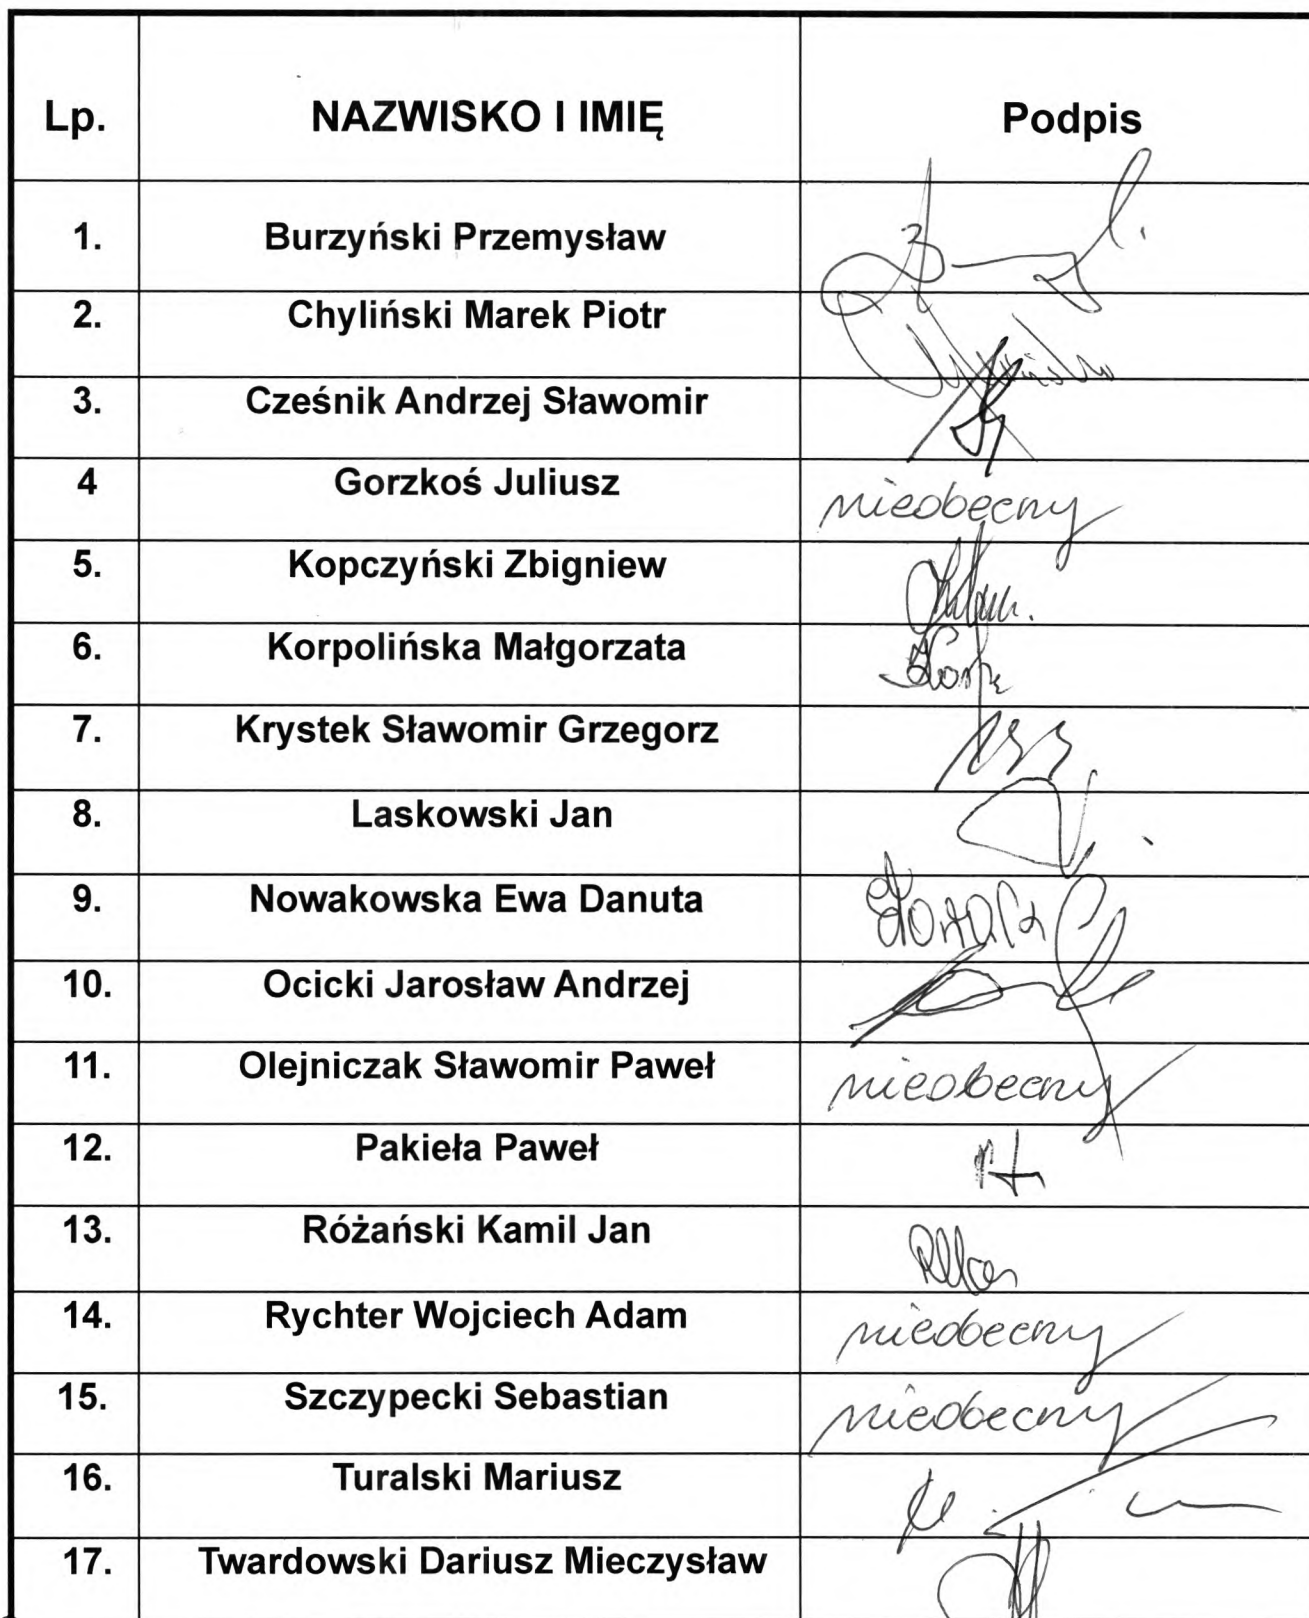 Lp. NAZWISKO I IMIĘ Podpis
1. Burzyński Przemysław
2. Chyliński Marek Piotr
3. Cześnik Andrzej Sławomir
4 Gorzkoś Juliusz nieobecny
5. Kopczyński Zbigniew
6. Korpolińska Małgorzata
7. Krystek Sławomir Grzegorz
8. Laskowski Jan
9. Nowakowska Ewa Danuta
10. Ocicki Jarosław Andrzej
11. Olejniczak Sławomir Paweł nieobecny
12. Pakieła Paweł
13. Różański Kamil Jan
14. Rychter Wojciech Adam nieobecny
15. Szczypecki Sebastian nieobecny
16. Turalski Mariusz
17. Twardowski Dariusz Mieczysław